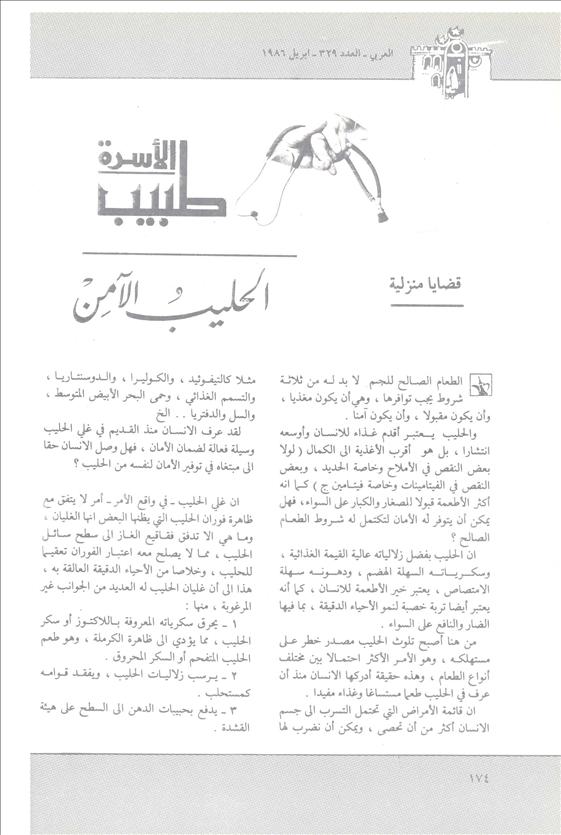 العربي - العدد ٣٢٩ - ابريل ١٩٨٦
الأسرة
طبيب
قضايا منزلية
الحليبُ الآمِنْ
الطعام الصالح للجم لا بد له من ثلاثة
شروط يجب توافرها ، وهي أن يكون مغذيا ،
وأن يكون مقبولا ، وأن يكون آمنا .
والحليب يعتبر أقدم غذاء للانسان وأوسعه
انتشارا ، بل هو أقرب الأغذية الى الكمال ( لولا
بعض النقص في الأملاح وخاصة الحديد ، وبعض
النقص في الفيتامينات وخاصة فيتامين ج ) كما انه
أكثر الأطعمة قبولا للصغار والكبار على السواء ، فهل
يمكن أن يتوفر له الأمان لتكتمل له شروط الطعام
الصالح ؟
ان الحليب بفضل زلالياته عالية القيمة الغذائية ،
وسكرياته السهلة الهضم ، ودهونه سهلة
الامتصاص ، يعتبر خير الأطعمة للانسان ، كما أنه
يعتبر أيضا تربة خصبة لنمو الأحياء الدقيقة ، بما فيها
الضار والنافع على السواء .
من هنا أصبح تلوث الحليب مصدر خطر على
مستهلكه ، وهو الأمر الأكثر احتمالا بين مختلف
أنواع الطعام ، وهذه حقيقة أدركها الانسان منذ أن
عرف في الحليب طعما مستساغا وغذاء مفيدا .
ان قائمة الأمراض التي تحتمل التسرب الى جسم
الانسان أكثر من أن تحصى ، ويمكن أن نضرب لها
مثلا كالتيفوئيد ، والكوليرا ، والدوسنتاريا ،
والتسمم الغذائي ، وحمى البحر الأبيض المتوسط ،
والسل والدفتريا . . الخ
لقد عرف الانسان منذ القديم في غلي الحليب
وسيلة فعالة لضمان الأمان ، فهل وصل الانسان حقا
الى مبتغاه في توفير الأمان لنفسه من الحليب ؟
ان غلي الحليب - في واقع الأمر - أمر لا يتفق مع
ظاهرة فوران الحليب التي يظنها البعض انها الغليان ،
وما هي الا تدفق فقاقيع الغاز الى سطح سائل
الحليب ، مما لا يصلح معه اعتبار الفوران تعقيما
للحليب ، وخلاصا من الأحياء الدقيقة العالقة به ،
هذا الى أن غليان الحليب له العديد من الجوانب غير
المرغوبة ، منها :
١ - يحرق سكرياته المعروفة باللاكتوز أو سكر
الحليب ، مما يؤدي الى ظاهرة الكرملة ، وهو طعم
الحليب المتفحم أو السكر المحروق .
٢ - يرسب زلاليات الحليب ، ويفقد قوامه
كمستحلب .
٣ - يدفع بحبيبات الدهن الى السطح على هيئة
القشدة .
١٧٤